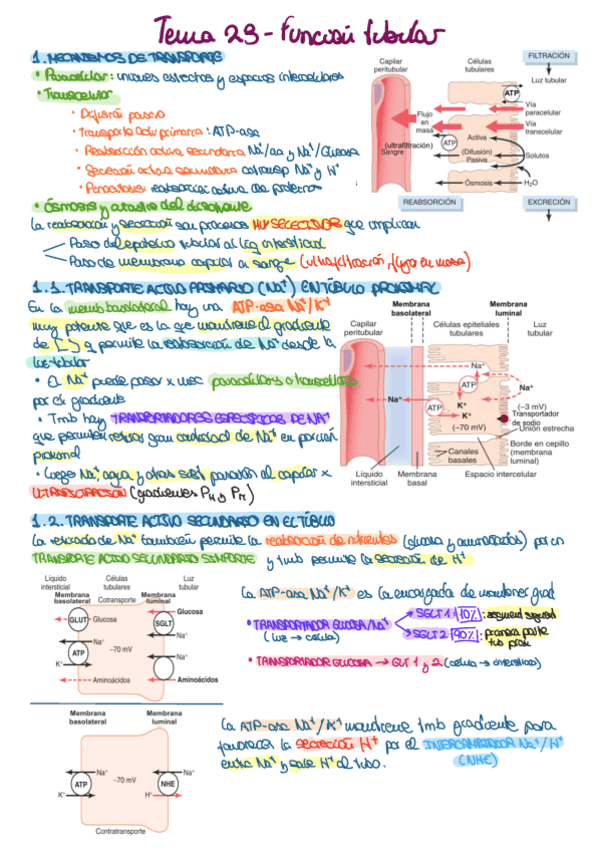 Tema 29 - Función tubular
1. MECANISMOS DE TRANSPORTE
• Paracelular: uniones estrechas y espacios intercelulares
• Transcelular
• Difusión pasiva
• Transporte activ primario: ATP-asa
• Reabsorción activa secundaria Na⁺/aa y Na⁺/Glucosa
• Secreción activa secundaria cotransp Na⁺ y H⁺
• Pinocitosis reabsorción activa de proteínas
• Ósmosis y arrastre del disolvente
La reabsorción y secreción son procesos MUY SELECTIVOS que implican
Paso del epitelio tubular al líq intersticial
Paso de membrana capilar a sangre (ultrafiltración, flujo en masa)
FILTRACIÓN
Capilar
peritubular
Células
tubulares
Luz tubular
ATP
Vía
paracelular
Flujo
en
masa
Vía
transcelular
Activa
(ultrafiltración)
ATP
Sangre
(Difusión)
Pasiva
Solutos
Ósmosis
H₂O
REABSORCIÓN
EXCRECIÓN
1.1. TRANSPORTE ACTIVO PRIMARIO (Na⁺) EN TÚBULO PROXIMAL
En la memb basolateral hay una ATP-asa Na⁺/K⁺
muy potente que es la que mantiene el gradiente
de [ ] y permite la reabsorción de Na⁺ desde la
luz tubular
• El Na⁺ puede pasar x vías paracelulares o transcelulares
por el gradiente
• Tmb hay TRANSPORTADORES ESPECÍFICOS DE NA⁺
que permiten retirar gran cantidad de Na⁺ en porción
proximal
• Luego Na⁺, agua y otras sust pasarán al capilar x
ULTRAFILTRACIÓN (gradientes PH y PN)
Membrana
basolateral
Membrana
luminal
Capilar
peritubular
Células epiteliales
tubulares
Luz
tubular
Na⁺
ATP
Na⁺
Na⁺
K⁺
(–3 mV)
ATP
K⁺
Transportador
de sodio
(–70 mV)
Unión estrecha
Canales
basales
Borde en cepillo
(membrana
luminal)
Líquido
intersticial
Membrana
basal
Espacio intercelular
1.2. TRANSPORTE ACTIVO SECUNDARIO EN EL TÚBULO
La entrada de Na⁺ también permite la reabsorción de nutrientes (glucosa y aminoácidos) por un
TRANSPORTE ACTIVO SECUNDARIO SIMPORTE y tmb permite la secreción de H⁺
Líquido
intersticial
Células
tubulares
Luz
tubular
Membrana
basolateral
Cotransporte
Membrana
luminal
Glucosa
GLUT
SGLT
Glucosa
Na⁺
Na⁺
ATP
–70 mV
K⁺
Na⁺
Aminoácidos
Aminoácidos
La ATP-asa Na⁺/K⁺ es la encargada de mantener grad
• TRANSPORTADOR GLUCOSA/Na⁺
(luz → célula)
SGLT 1 (10%):
SGLT 2 (90%): primera parte
tub proxi
• TRANSPORTADOR GLUCOSA → GLT 1 y 2 (célula → intersticio)
Membrana
basolateral
Membrana
luminal
Na⁺
Na⁺
ATP
–70 mV
NHE
K⁺
H⁺
Contratransporte
La ATP-asa Na⁺/K⁺ mantiene tmb gradiente para
favorecer la secreción H⁺ por el INTERCAMBIADOR Na⁺/H⁺
entra Na⁺ y sale H⁺ al tubo. (NHE)